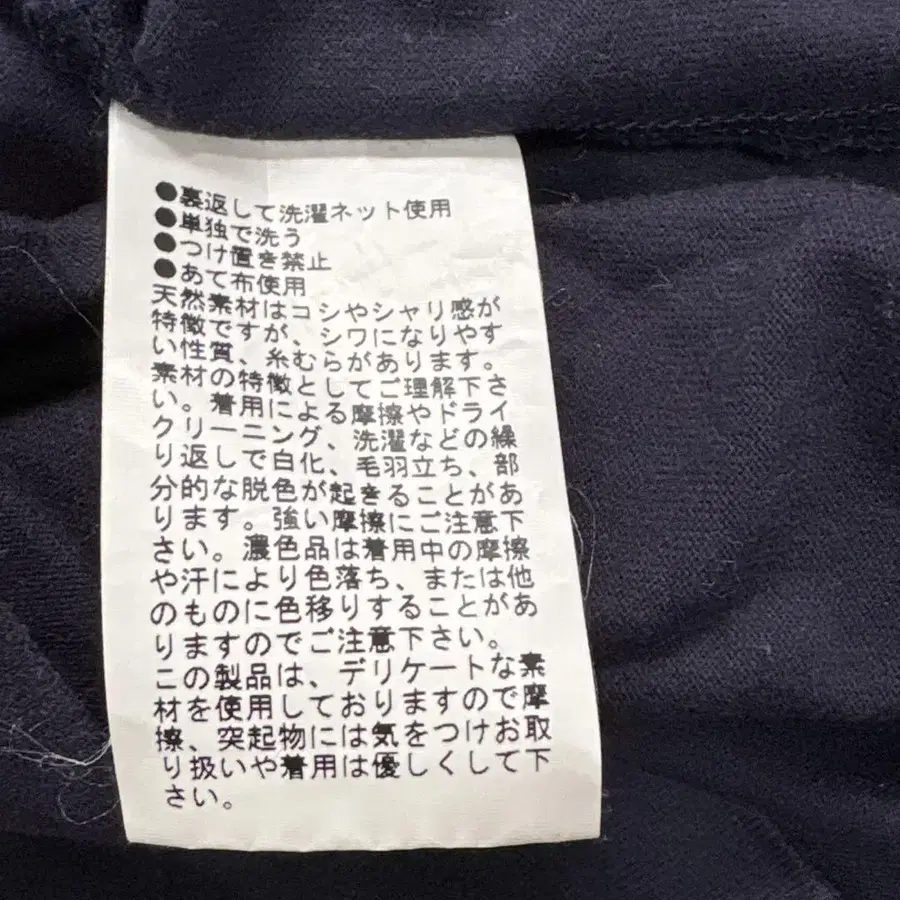 ●裏返して洗濯ネット使用
●単独で洗う
●つけ置き禁止
●あて布使用
天然素材はコシやシャリ感が
特徴ですが、シワになりやす
い性質、糸むらがあります。
素材の特徴としてご理解下さ
い。着用による摩擦やドライ
クリーニング、洗濯などの繰
り返しで白化、毛羽立ち、部
分的な脱色が起きることがあ
ります。強い摩擦にご注意下
さい。濃色品は着用中の摩擦
や汗により色落ち、または他
のものに色移りすることがあ
りますのでご注意下さい。
この製品は、デリケートな素
材を使用しておりますので摩
擦、突起物には気をつけお取
り扱いや着用は優しくして下
さい。